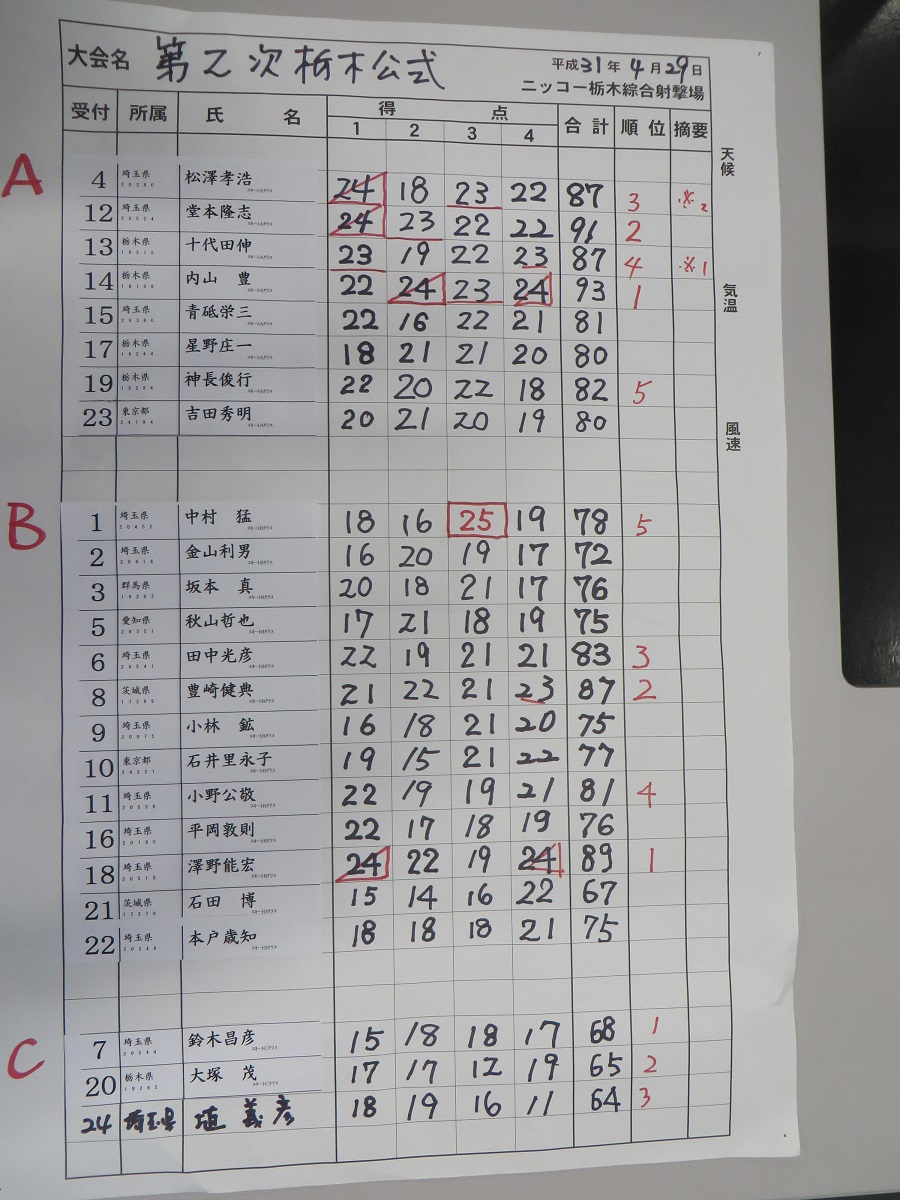 大会名 第2次栃木公式 平成31年4月29日
ニッコー栃木綜合射撃場
受付 所属 氏 名 得 点 合計 順位 摘要
1 2 3 4
天候
気温
風速
A
4 埼玉県 松澤孝浩 24 18 23 22 87 3 ※2
12 埼玉県 堂本隆志 24 23 22 22 91 2
13 栃木県 十代田伸 23 19 22 23 87 4 ※1
14 栃木県 内山 豊 22 24 23 24 93 1
15 埼玉県 青砥栄三 22 16 22 21 81
17 栃木県 星野庄一 18 21 21 20 80
19 栃木県 神長俊行 22 20 22 18 82 5
23 東京都 吉田秀明 20 21 20 19 80
B
1 埼玉県 中村 猛 18 16 25 19 78 5
2 埼玉県 金山利男 16 20 19 17 72
3 群馬県 坂本 真 20 18 21 17 76
5 愛知県 秋山哲也 17 21 18 19 75
6 埼玉県 田中光彦 22 19 21 21 83 3
8 茨城県 豊崎健典 21 22 21 23 87 2
9 埼玉県 小林 鉱 16 18 21 20 75
10 東京都 石井里永子 19 15 21 22 77
11 埼玉県 小野公敬 22 19 19 21 81 4
16 埼玉県 平岡敦則 22 17 18 19 76
18 埼玉県 澤野能宏 24 22 19 24 89 1
21 茨城県 石田 博 15 14 16 22 67
22 埼玉県 本戸歳知 18 18 18 21 75
C
7 埼玉県 鈴木昌彦 15 18 18 17 68 1
20 栃木県 大塚 茂 17 17 12 19 65 2
24 埼玉県 義彦 18 19 16 11 64 3